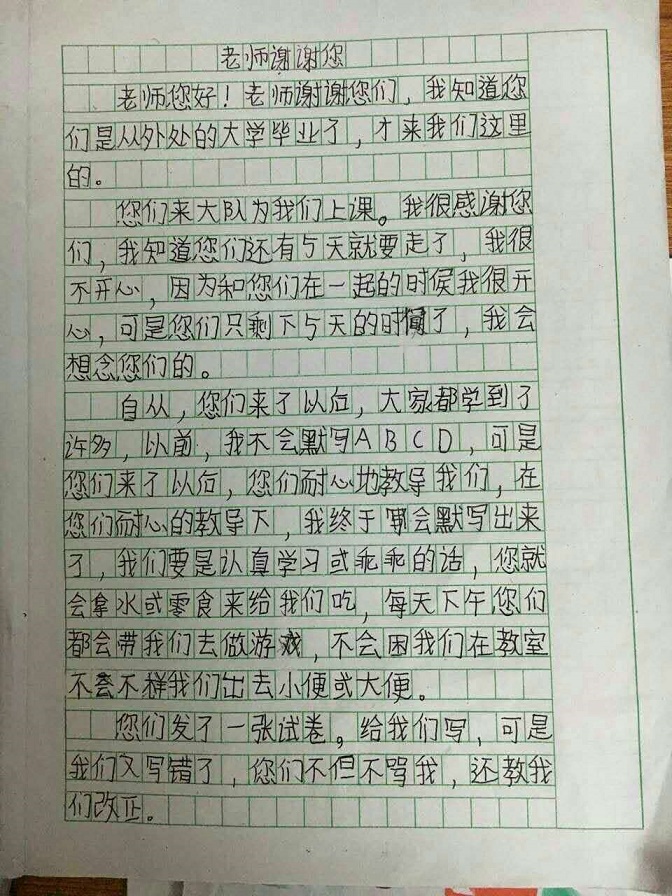 老师谢谢您
老师您好！老师谢谢您们，我知道您
们是从外处的大学毕业了，才来我们这里
的。
您们来大队为我们上课。我很感谢您
们，我知道您们还有5天就要走了，我很
不开心，因为和您们在一起的时侯我很开
心，可是您们只剩下5天的时间了，我会
想念您们的。
自从，您们来了以后，大家都学到了
许多，以前，我不会默写ABCD，可是
您们来了以后，您们耐心地教导我们，在
您们耐心的教导下，我终于学会默写出来
了，我们要是认真学习或乖乖的话，您就
会拿水或零食来给我们吃，每天下午您们
都会带我们去做游戏，不会困我们在教室
不会不样我们出去小便或大便。
您们发了一张试卷。给我们写，可是
我们又写错了，您们不但不骂我，还教我
们改正。